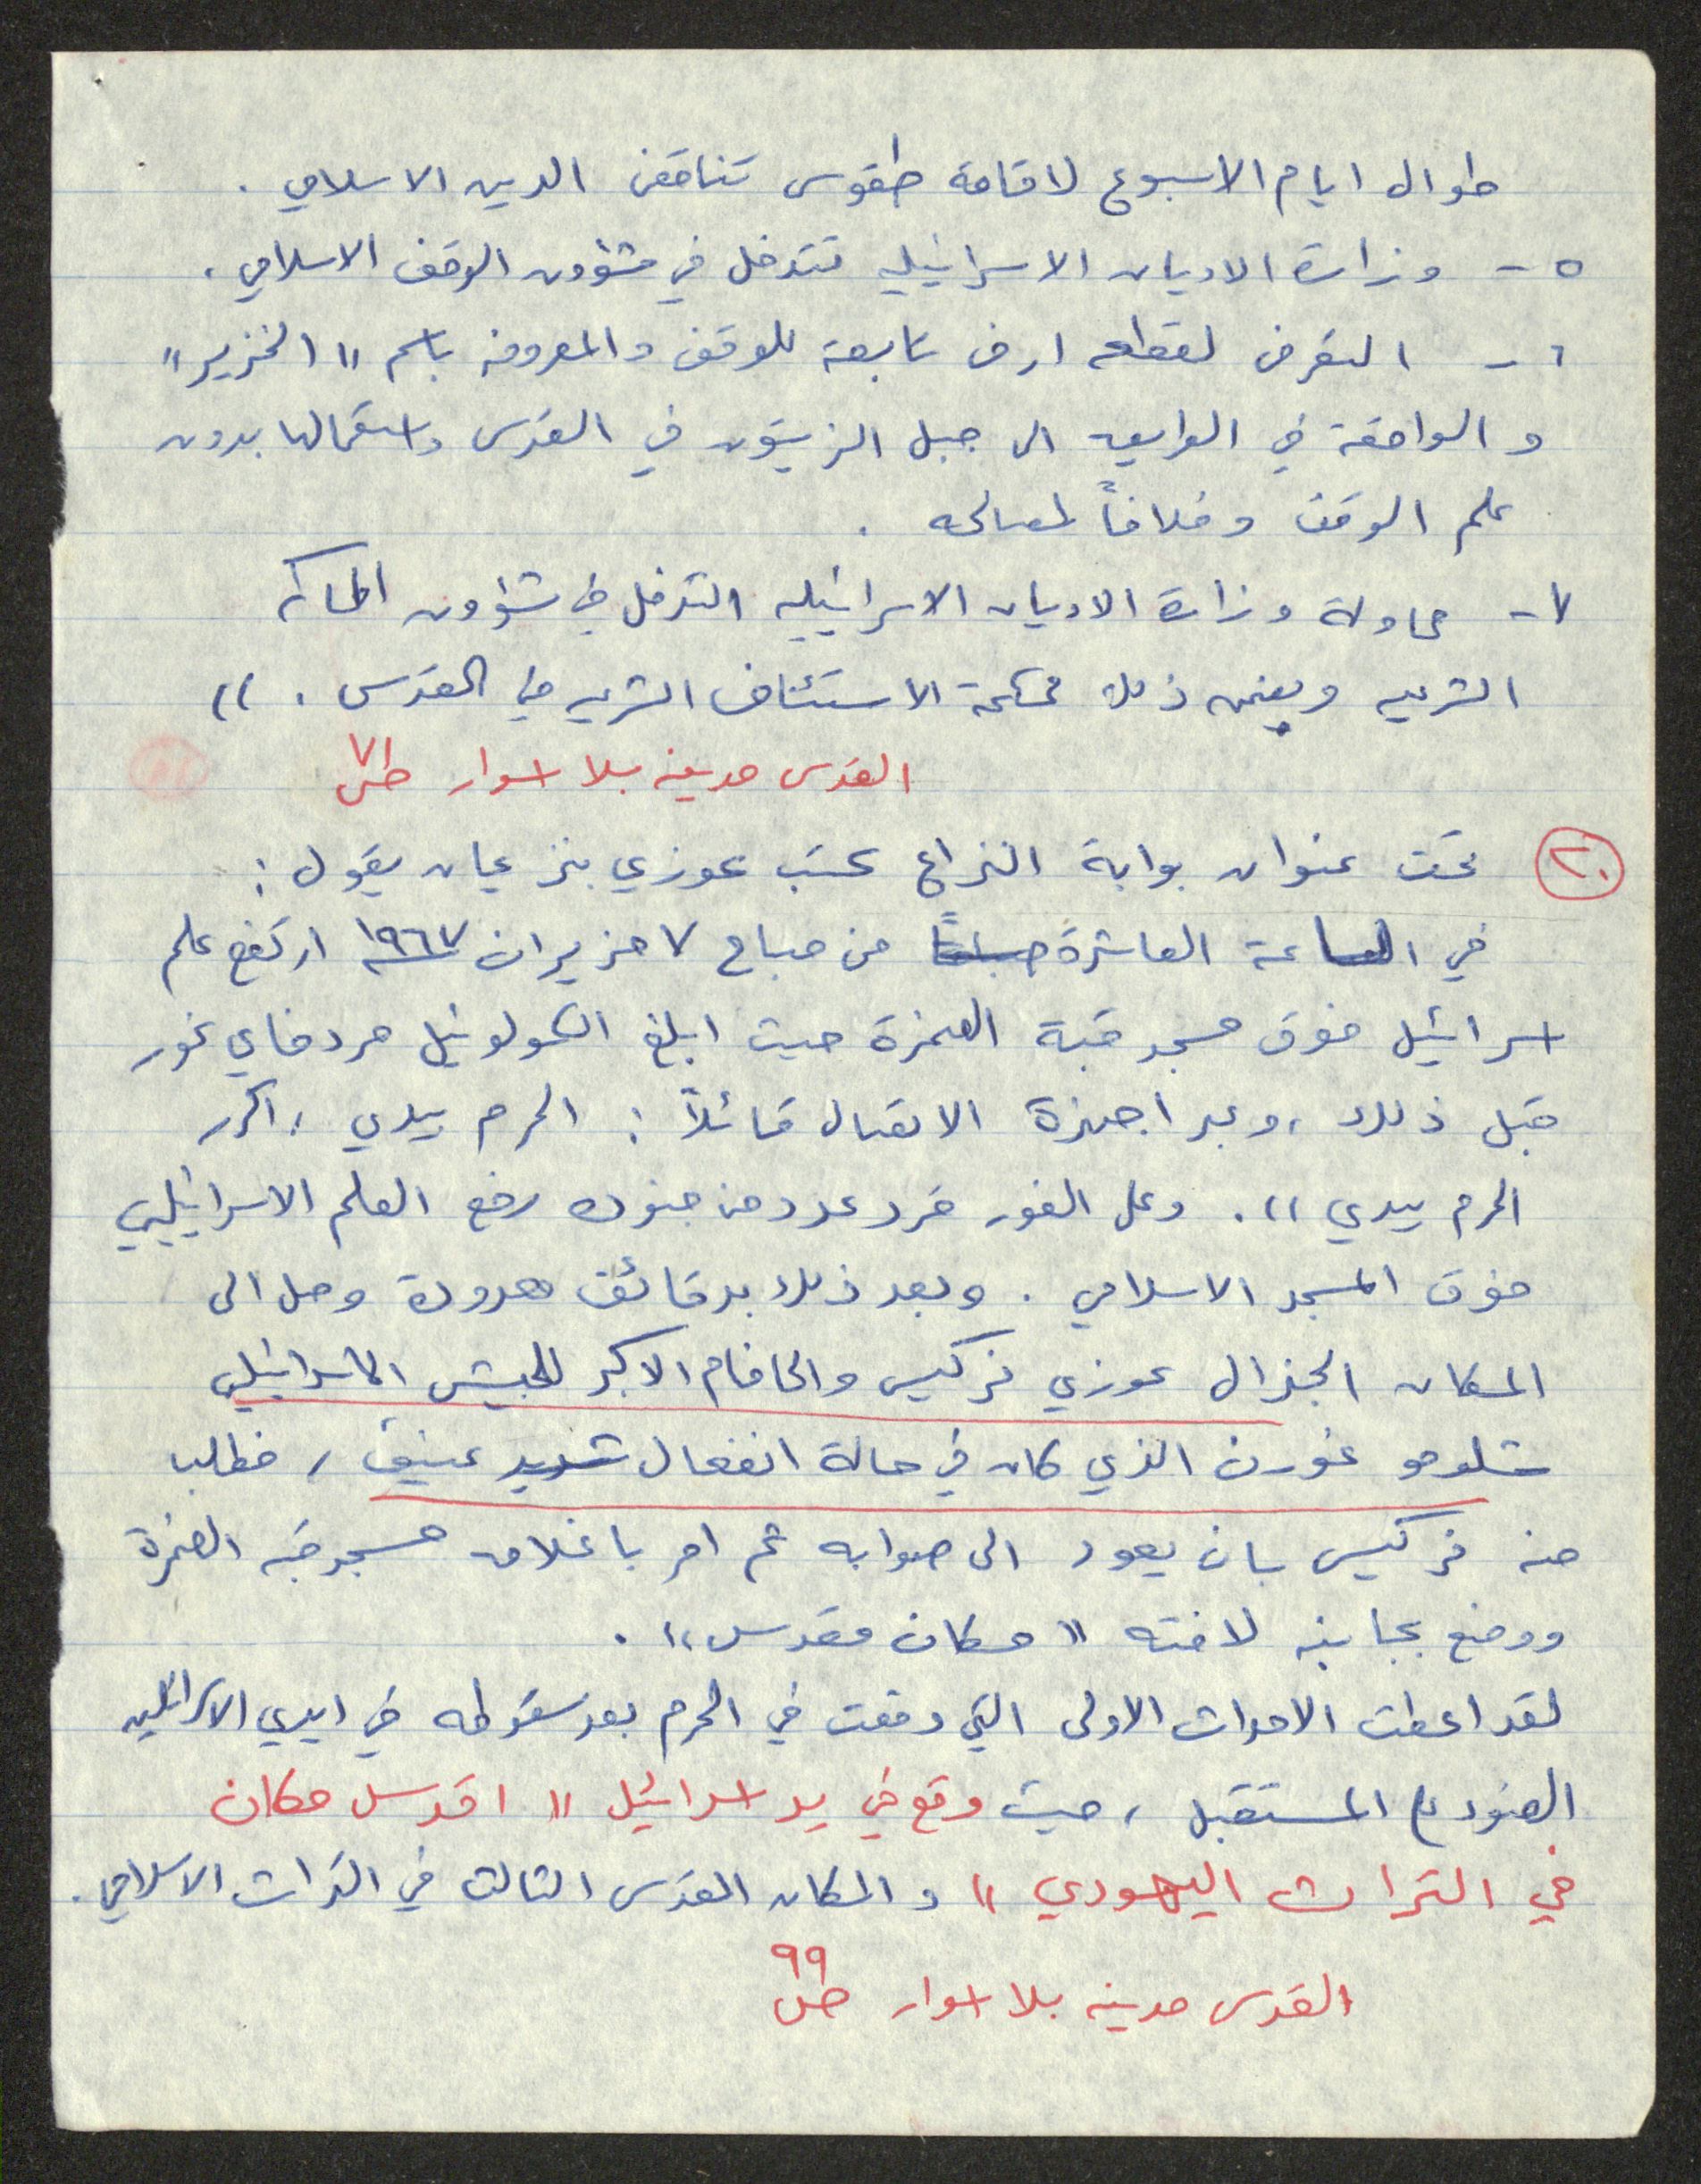 طوال ايام الاسبوع لاقامة طقوس تناقض الدين الاسلامي .
٥ - وزارة الاديان الاسرائيليه تتدخل في شؤون الوقف الاسلامي .
٦ - التعرض لقطعه ارض تابعة للوقف والمعروفه باسم " الخنزير "
والواقعة في الطريق الى جبل الزيتون في القدس واستعمالها بدون
علم الوقف وخلافاً لمصالحه .
٧ - محاولة وزارة الاديان الاسرائيليه التدخل في شؤون المحاكم
الشرعيه وبضمن ذلك محكمة الاستئناف الشرعيه في القدس . "
القدس مدينه بلا اسوار ص ٧١
٢٠ تحت عنوان بوابة النزاع كتب عوزي بنزيمان يقول :
في الساعة العاشرة صباحاً من صباح ٧ حزيران ١٩٦٧ ارتفع علم
اسرائيل فوق مسجد قبة الصخرة حيث ابلغ الكولونيل مردخاي غور
قبل ذلك ، وعبر اجهزة الاتصال قائلاً : الحرم بيدي ، اكرر
الحرم بيدي " . وعلى الفور قرر عدد من جنوده رفع العلم الاسرائيلي
فوق المسجد الاسلامي . وبعد ذلك بدقائق معدودة وصل الى
المكان الجنرال عوزي نركيس والحاخام الاكبر للجيش الاسرائيلي
شلومو غورن الذي كان في حالة انفعال شديد عنيف ، فطلب
منه نركيس بان يعود الى صوابه ثم امر باغلاق مسجد قبه الصخرة
ووضع بجانبه لافته " مكان مقدس " .
لقد اعطت الاحداث الاولى التي وقعت في الحرم بعد سقوطه في ايدي الاسرائيليين
الضوء على المستقبل ، حيث وقع في يد اسرائيل " اقدس مكان
في التراث اليهودي " والمكان المقدس الثالث في التراث الاسلامي .
القدس مدينه بلا اسوار ص ٩٩